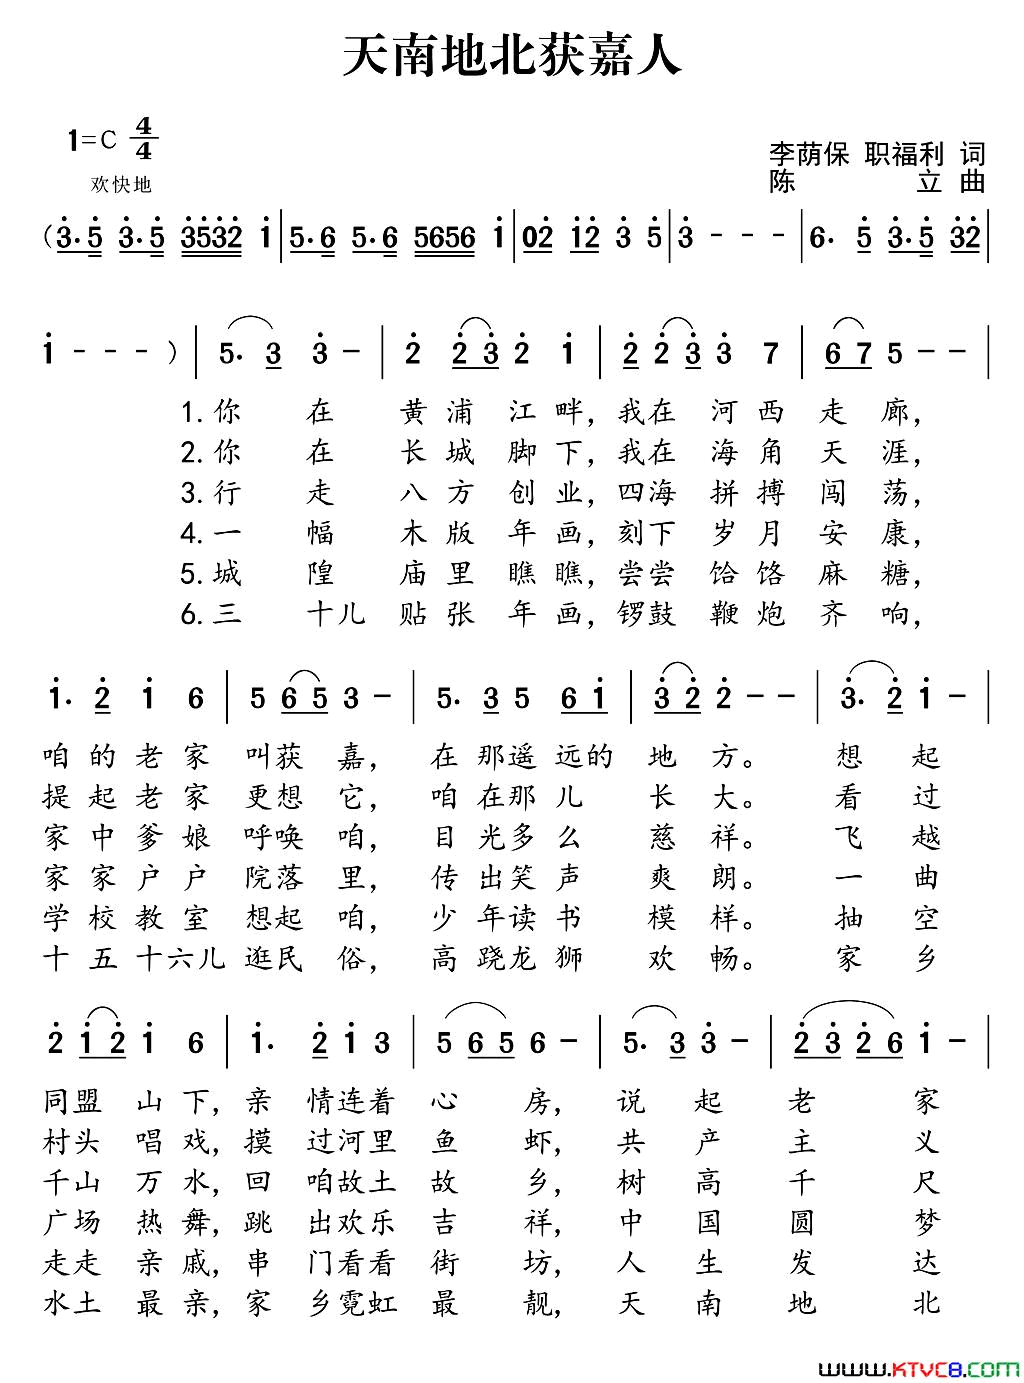 天南地北获嘉人
1=C 4/4
欢快地
李荫保 职福利 词
陈 立 曲
(3·5 3·5 3532 1 | 5·6 5·6 5656 1 | 02 12 3 5 | 3 - - - | 6· 5 3·5 32 |
1 - - - ) | 5· 3 3 - | 2 2 3 2 1 | 2 2 3 3 7 | 6 7 5 - - |
1.你 在 黄 浦 江 畔，我在 河 西 走 廊，
2.你 在 长 城 脚 下，我在 海 角 天 涯，
3.行 走 八 方 创 业，四海 拼 搏 闯 荡，
4.一 幅 木 版 年 画，刻下 岁 月 安 康，
5.城 隍 庙 里 瞧 瞧，尝尝 饸 饹 麻 糖，
6.三 十儿 贴 张 年 画，锣鼓 鞭 炮 齐 响，
1· 2 1 6 | 5 6 5 3 - | 5· 3 5 6 1 | 3 2 2 - - | 3· 2 1 - |
咱 的 老 家 叫获 嘉， 在 那遥 远的 地 方。 想 起
提 起 老 家 更想 它， 咱 在那 儿 长 大。 看 过
家 中 爹 娘 呼唤 咱， 目 光多 么 慈 祥。 飞 越
家 家 户 户 院落 里， 传 出笑 声 爽 朗。 一 曲
学 校 教 室 想起 咱， 少 年读 书 模 样。 抽 空
十 五 十六儿 逛民 俗， 高 跷龙 狮 欢 畅。 家 乡
2 1 2 1 6 | 1· 2 1 3 | 5 6 5 6 - | 5· 3 3 - | 2 3 2 6 1 - |
同盟 山 下，亲 情连着 心 房， 说 起 老 家
村头 唱 戏，摸 过河里 鱼 虾， 共 产 主 义
千山 万 水，回 咱故土 故 乡， 树 高 千 尺
广场 热 舞，跳 出欢乐 吉 祥， 中 国 圆 梦
走走 亲 戚，串 门看看 街 坊， 人 生 发 达
水土 最 亲，家 乡霓虹 最 靓， 天 南 地 北
www.KTVC8.com